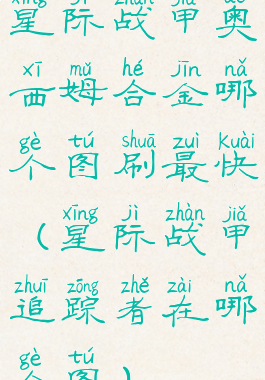 xīng jì zhàn jiǎ ào
星际战甲奥
xī mǔ hé jīn nǎ
西姆合金哪
gè tú shuā zuì kuài
个图刷最快
xīng jì zhàn jiǎ
(星际战甲
zhuī zōng zhě zài nǎ
追踪者在哪
gè tú
个图)